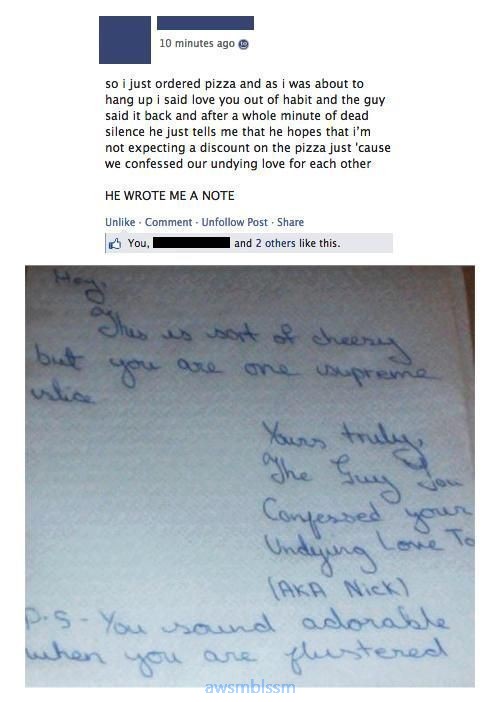 10 minutes ago
so i just ordered pizza and as i was about to
hang up i said love you out of habit and the guy
said it back and after a whole minute of dead
silence he just tells me that he hopes that i'm
not expecting a discount on the pizza just 'cause
we confessed our undying love for each other
HE WROTE ME A NOTE
Unlike · Comment · Unfollow Post · Share
You, and 2 others like this.
Hey,
This is sort of cheesy
but you are one supreme
slice
Yours truly,
The Guy You
Confessed your
Undying Love To
(AKA Nick)
P.S - You sound adorable
when you are flustered
awsmblssm